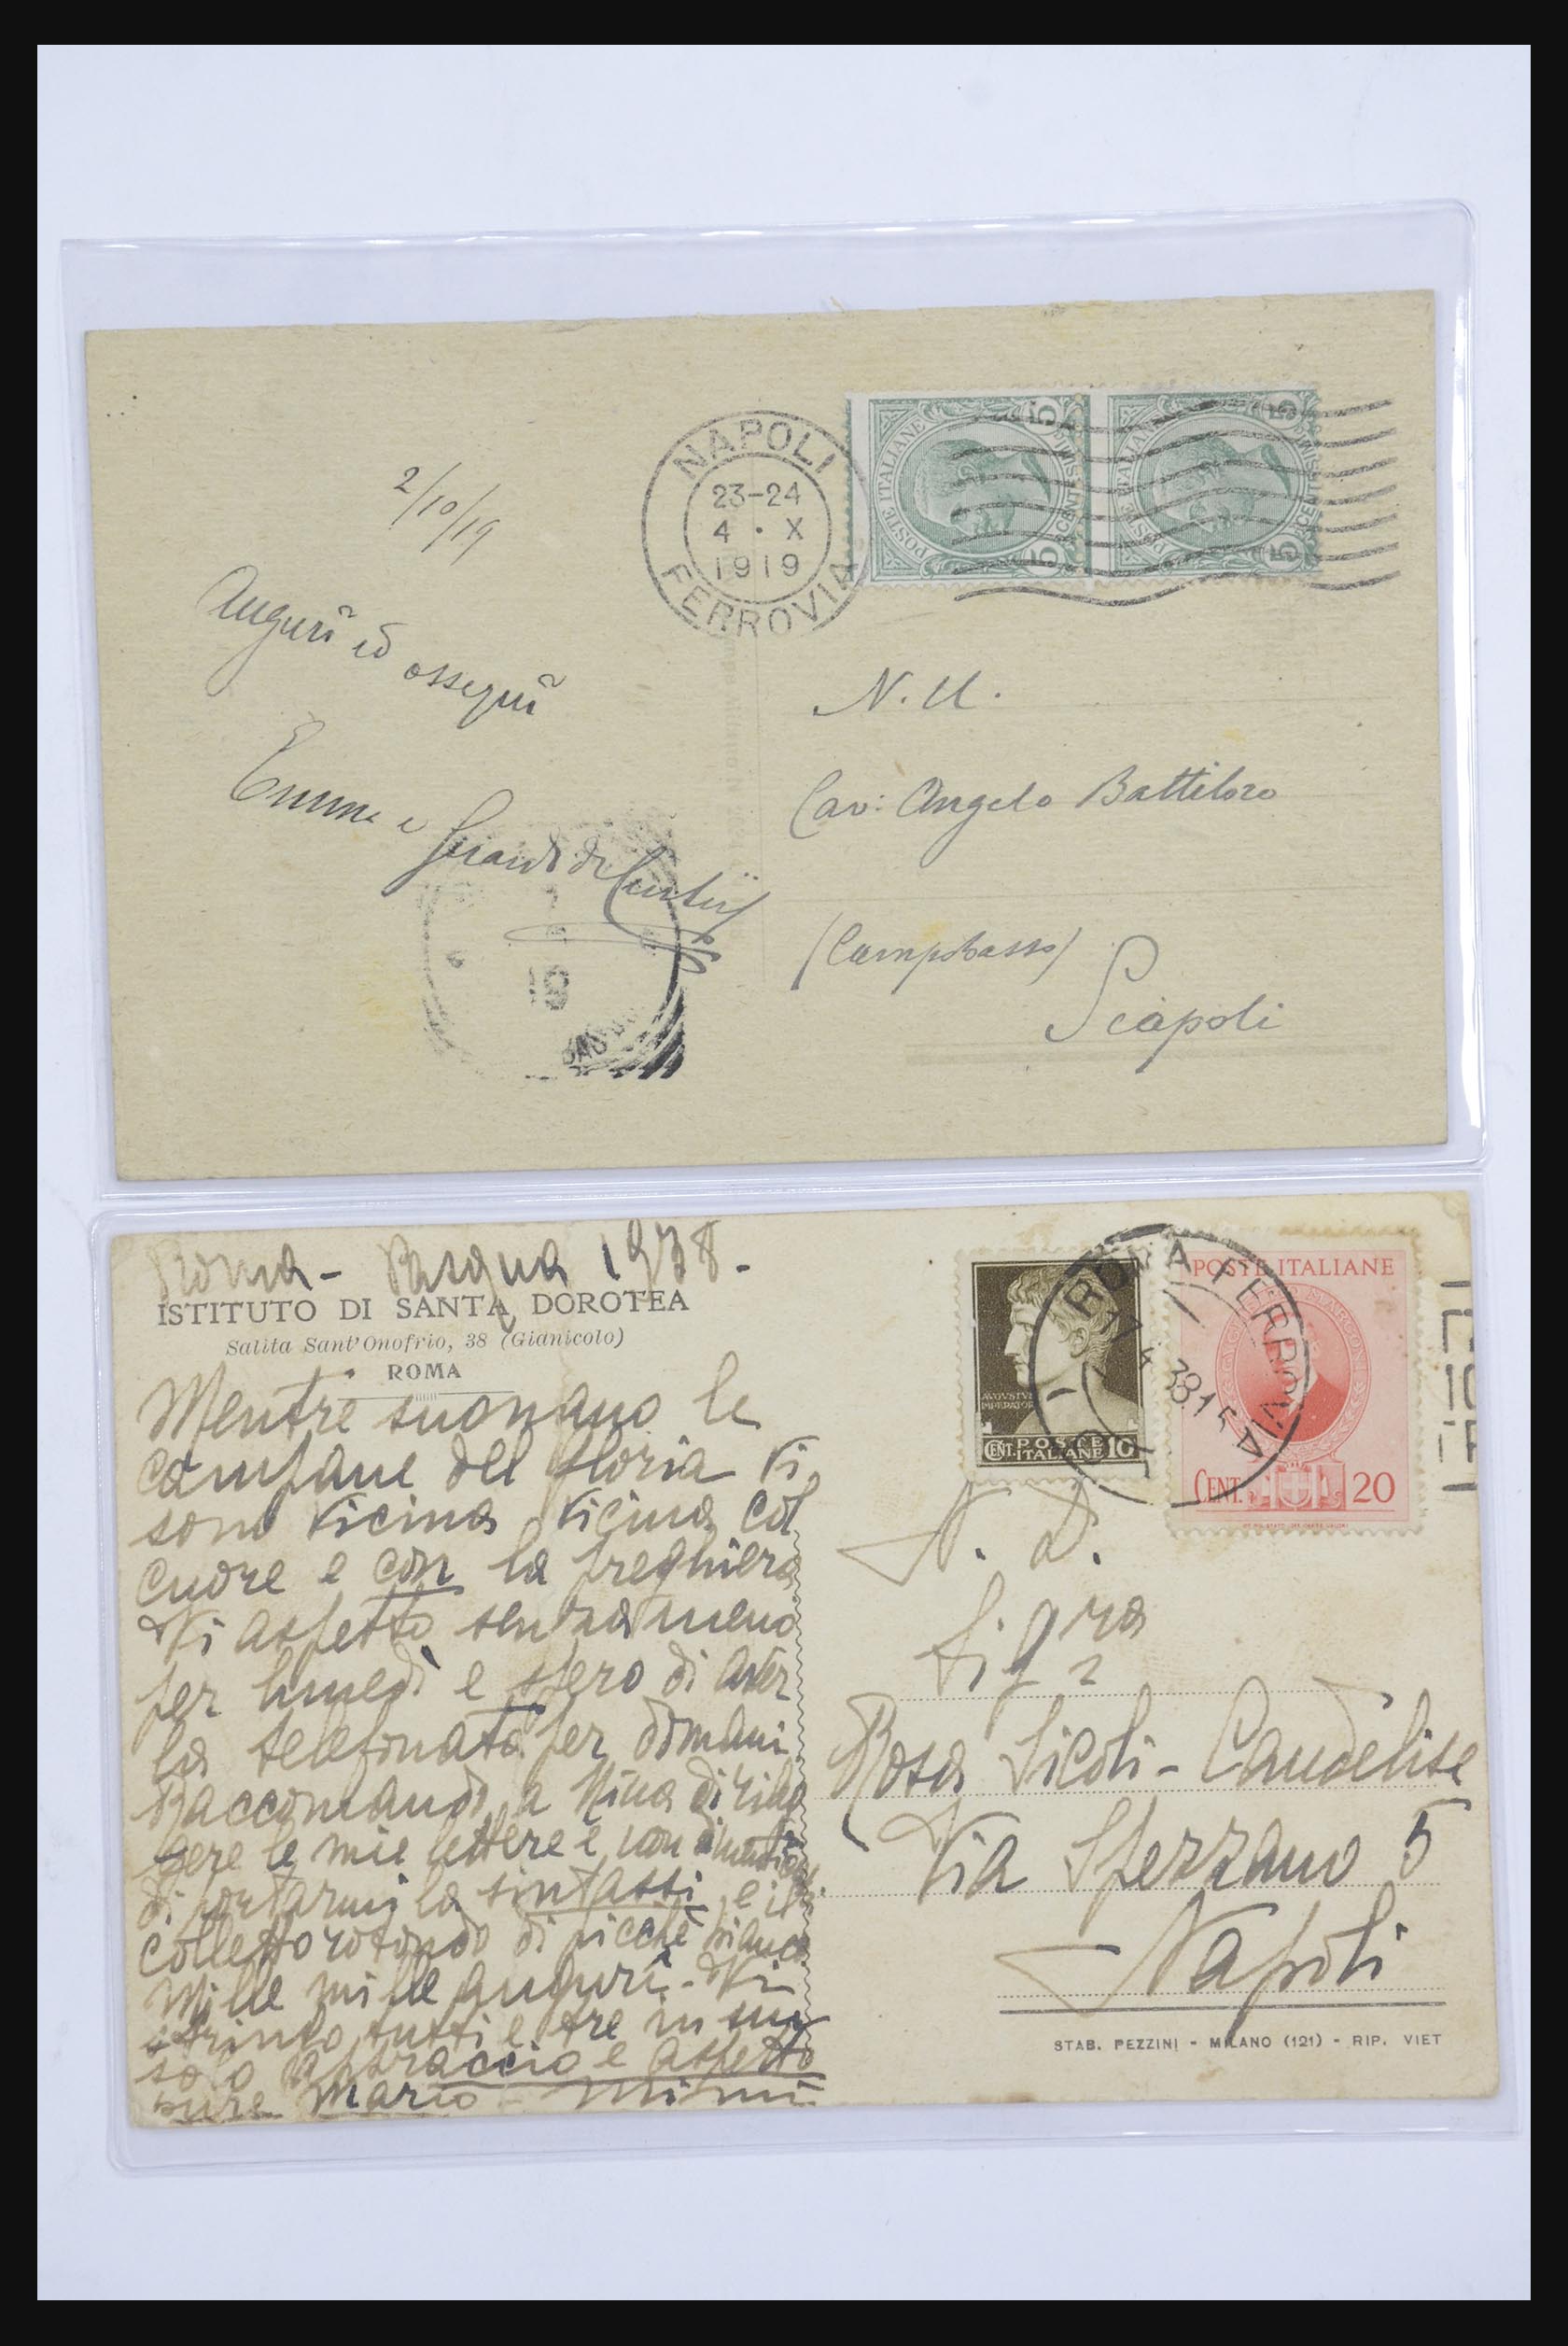 NAPOLI
23-24
4 · X
1919
FERROVIA
POSTE ITALIANE
5 CENTESIMI 5
POSTE ITALIANE
5 CENTESIMI 5
2/10/19
Auguri ed ossequi
e di
19
N. U.
Cav: Angelo Battiloro
(Campobasso)
Scapoli
Roma - Pasqua 1938 -
ISTITUTO DI SANTA DOROTEA
Salita Sant'Onofrio, 38 (Gianicolo)
ROMA
Mentre suonano le
campane del Gloria Vi
sono vicina, vicina col
cuore e con la preghiera
Vi aspetto senza meno
per lunedì e spero di aver
la telefonata per domani
Raccomando a Nina di
gere le mie lettere e non
di portarmi la sintassi e il
colletto rotondo di picchè bianco
Mille mille auguri - Vi
stringo tutti e tre in un
solo abbraccio e aspetto
pure Mario - Mimì
ROMA FERROVIA
4 38 15
AVGVSTVS
IMPERATOR
CENT. POSTE ITALIANE 10
POSTE ITALIANE
CENT. 20
N. D.
Sig.ra
Rosa Sicoli - Candelise
Via Spezzano 5
Napoli
STAB. PEZZINI - MILANO (121) - RIP. VIET